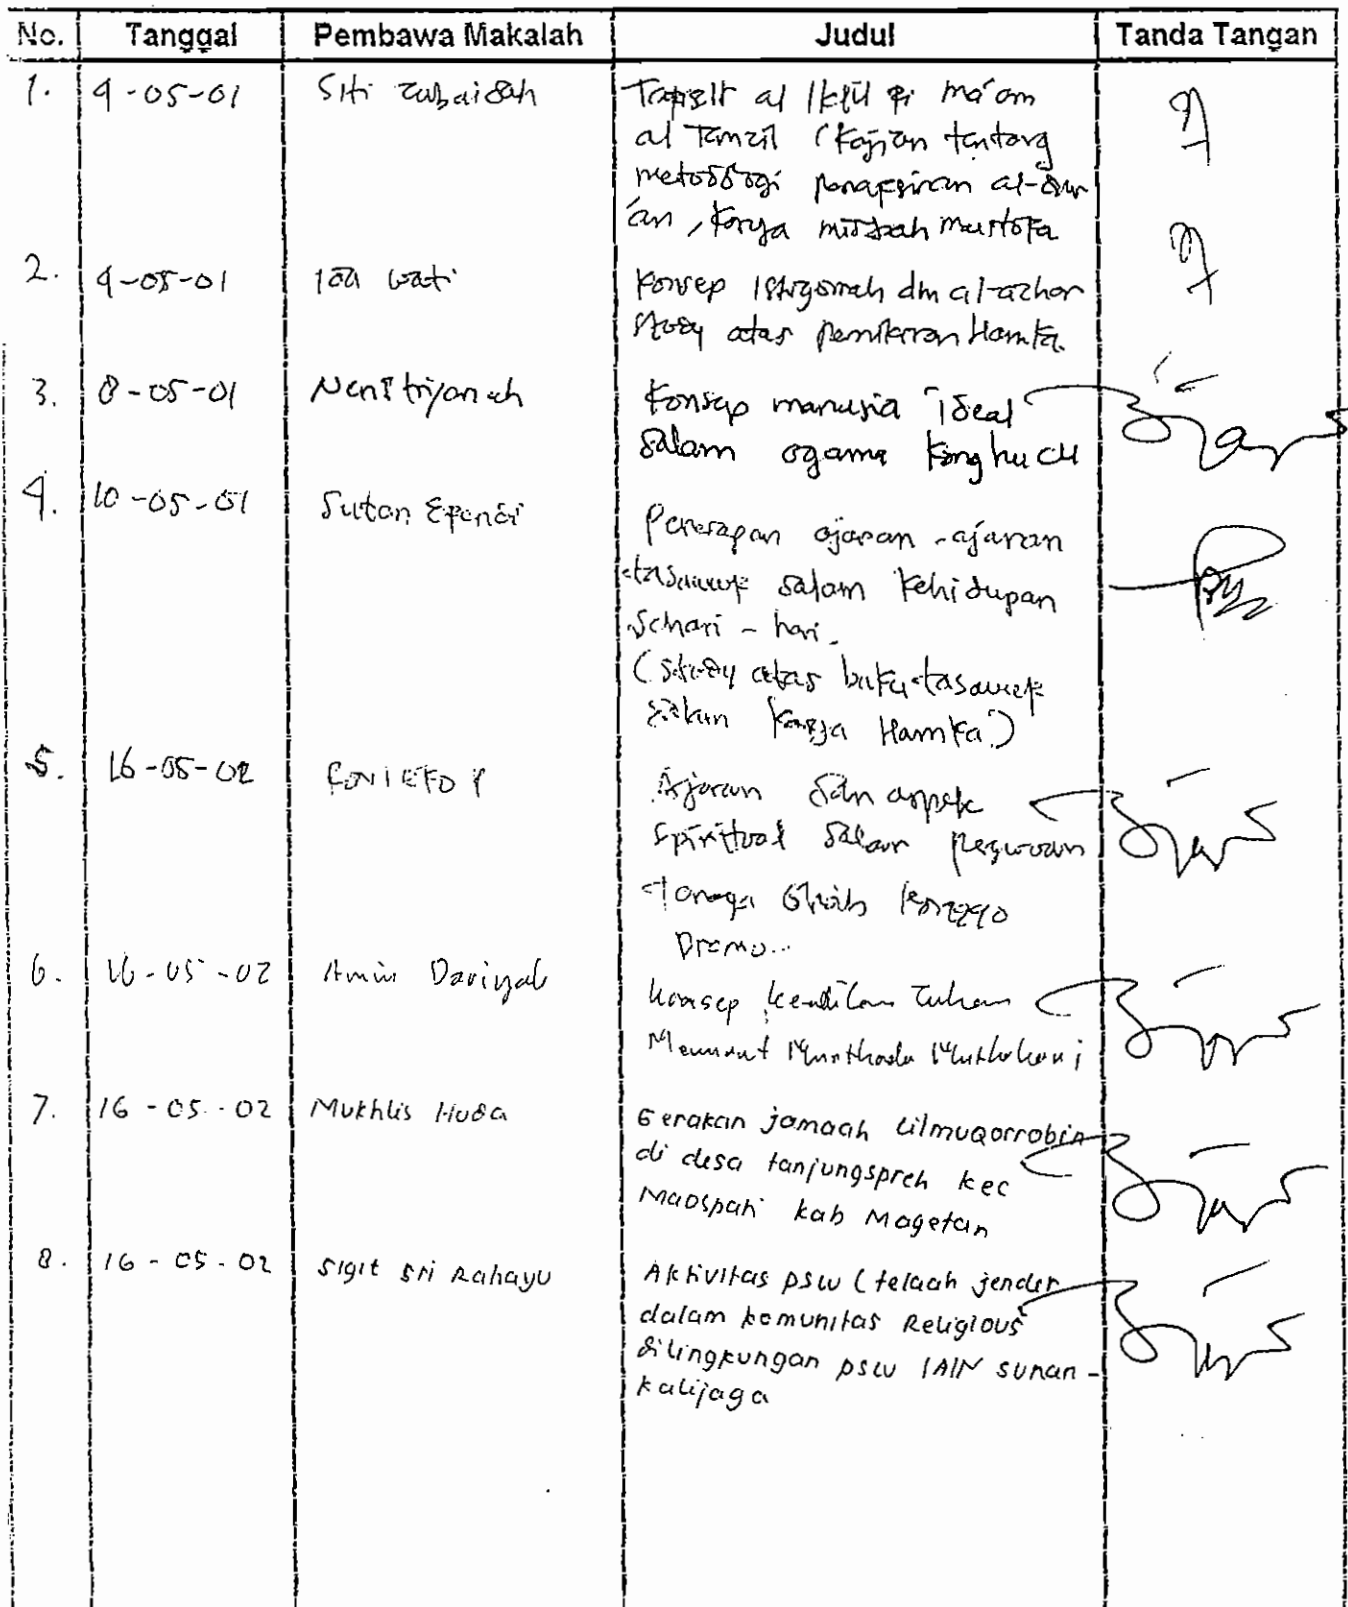 No. Tanggal Pembawa Makalah Judul Tanda Tangan
1. 9-05-01 Siti Zubaidah Tafsir al Iklil fi ma'ani
al Tanzil (Kajian tentang
metodologi penafsiran al-Qur
'an, karya misbah mustofa
2. 9-05-01 Ida wati Konsep Istiqomah dlm al-azhar
Study atas pemikiran Hamka.
3. 8-05-01 Neni triyanah Konsep manusia ideal
dalam agama Konghucu
4. 10-05-01 Sutan Efendi Penerapan ajaran-ajaran
tasawuf dalam kehidupan
sehari-hari.
(study atas buku tasawuf
karya Hamka)
5. 16-05-02 Ajaran dan aspek
spiritual dalam perguruan
Tenaga Ghaib
6. 16-05-02 Amin Dariyah Konsep keadilan Tuhan
Menurut Murthada Muthahari
7. 16-05-02 Mukhlis Huda Gerakan jamaah Lilmuqorrobin
di desa tanjungsepreh kec
Maospati kab Magetan
8. 16-05-02 Sigit Sri Rahayu Aktivitas psw (telaah jender
dalam komunitas Religious
dilingkungan psw IAIN sunan-
kalijaga